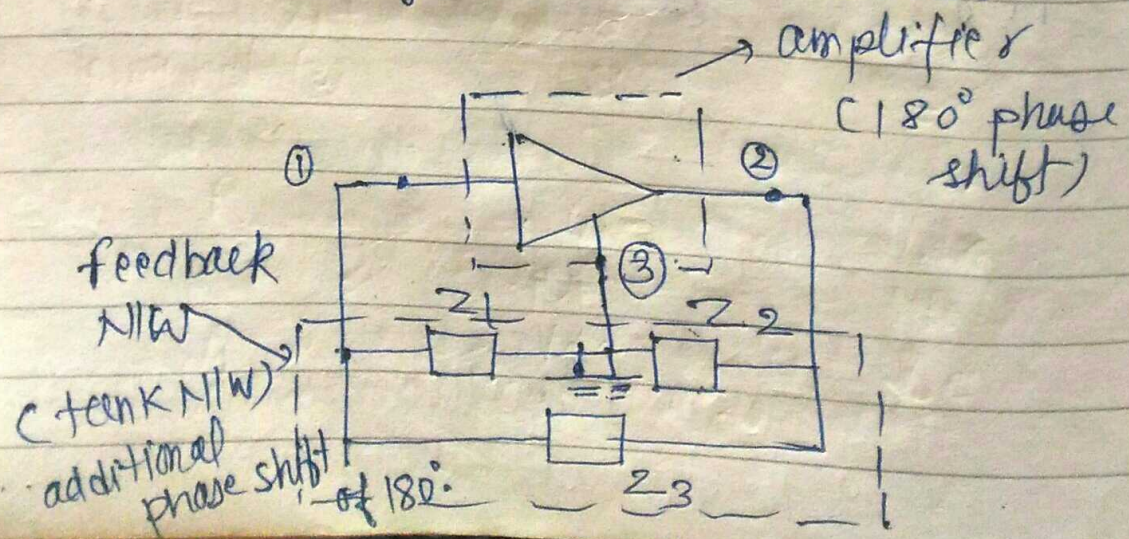 amplifier
(180° phase
shift)
①
②
③
feedback
N/W
(tank N/W)
additional
phase shift
of 180°
Z1
Z2
Z3